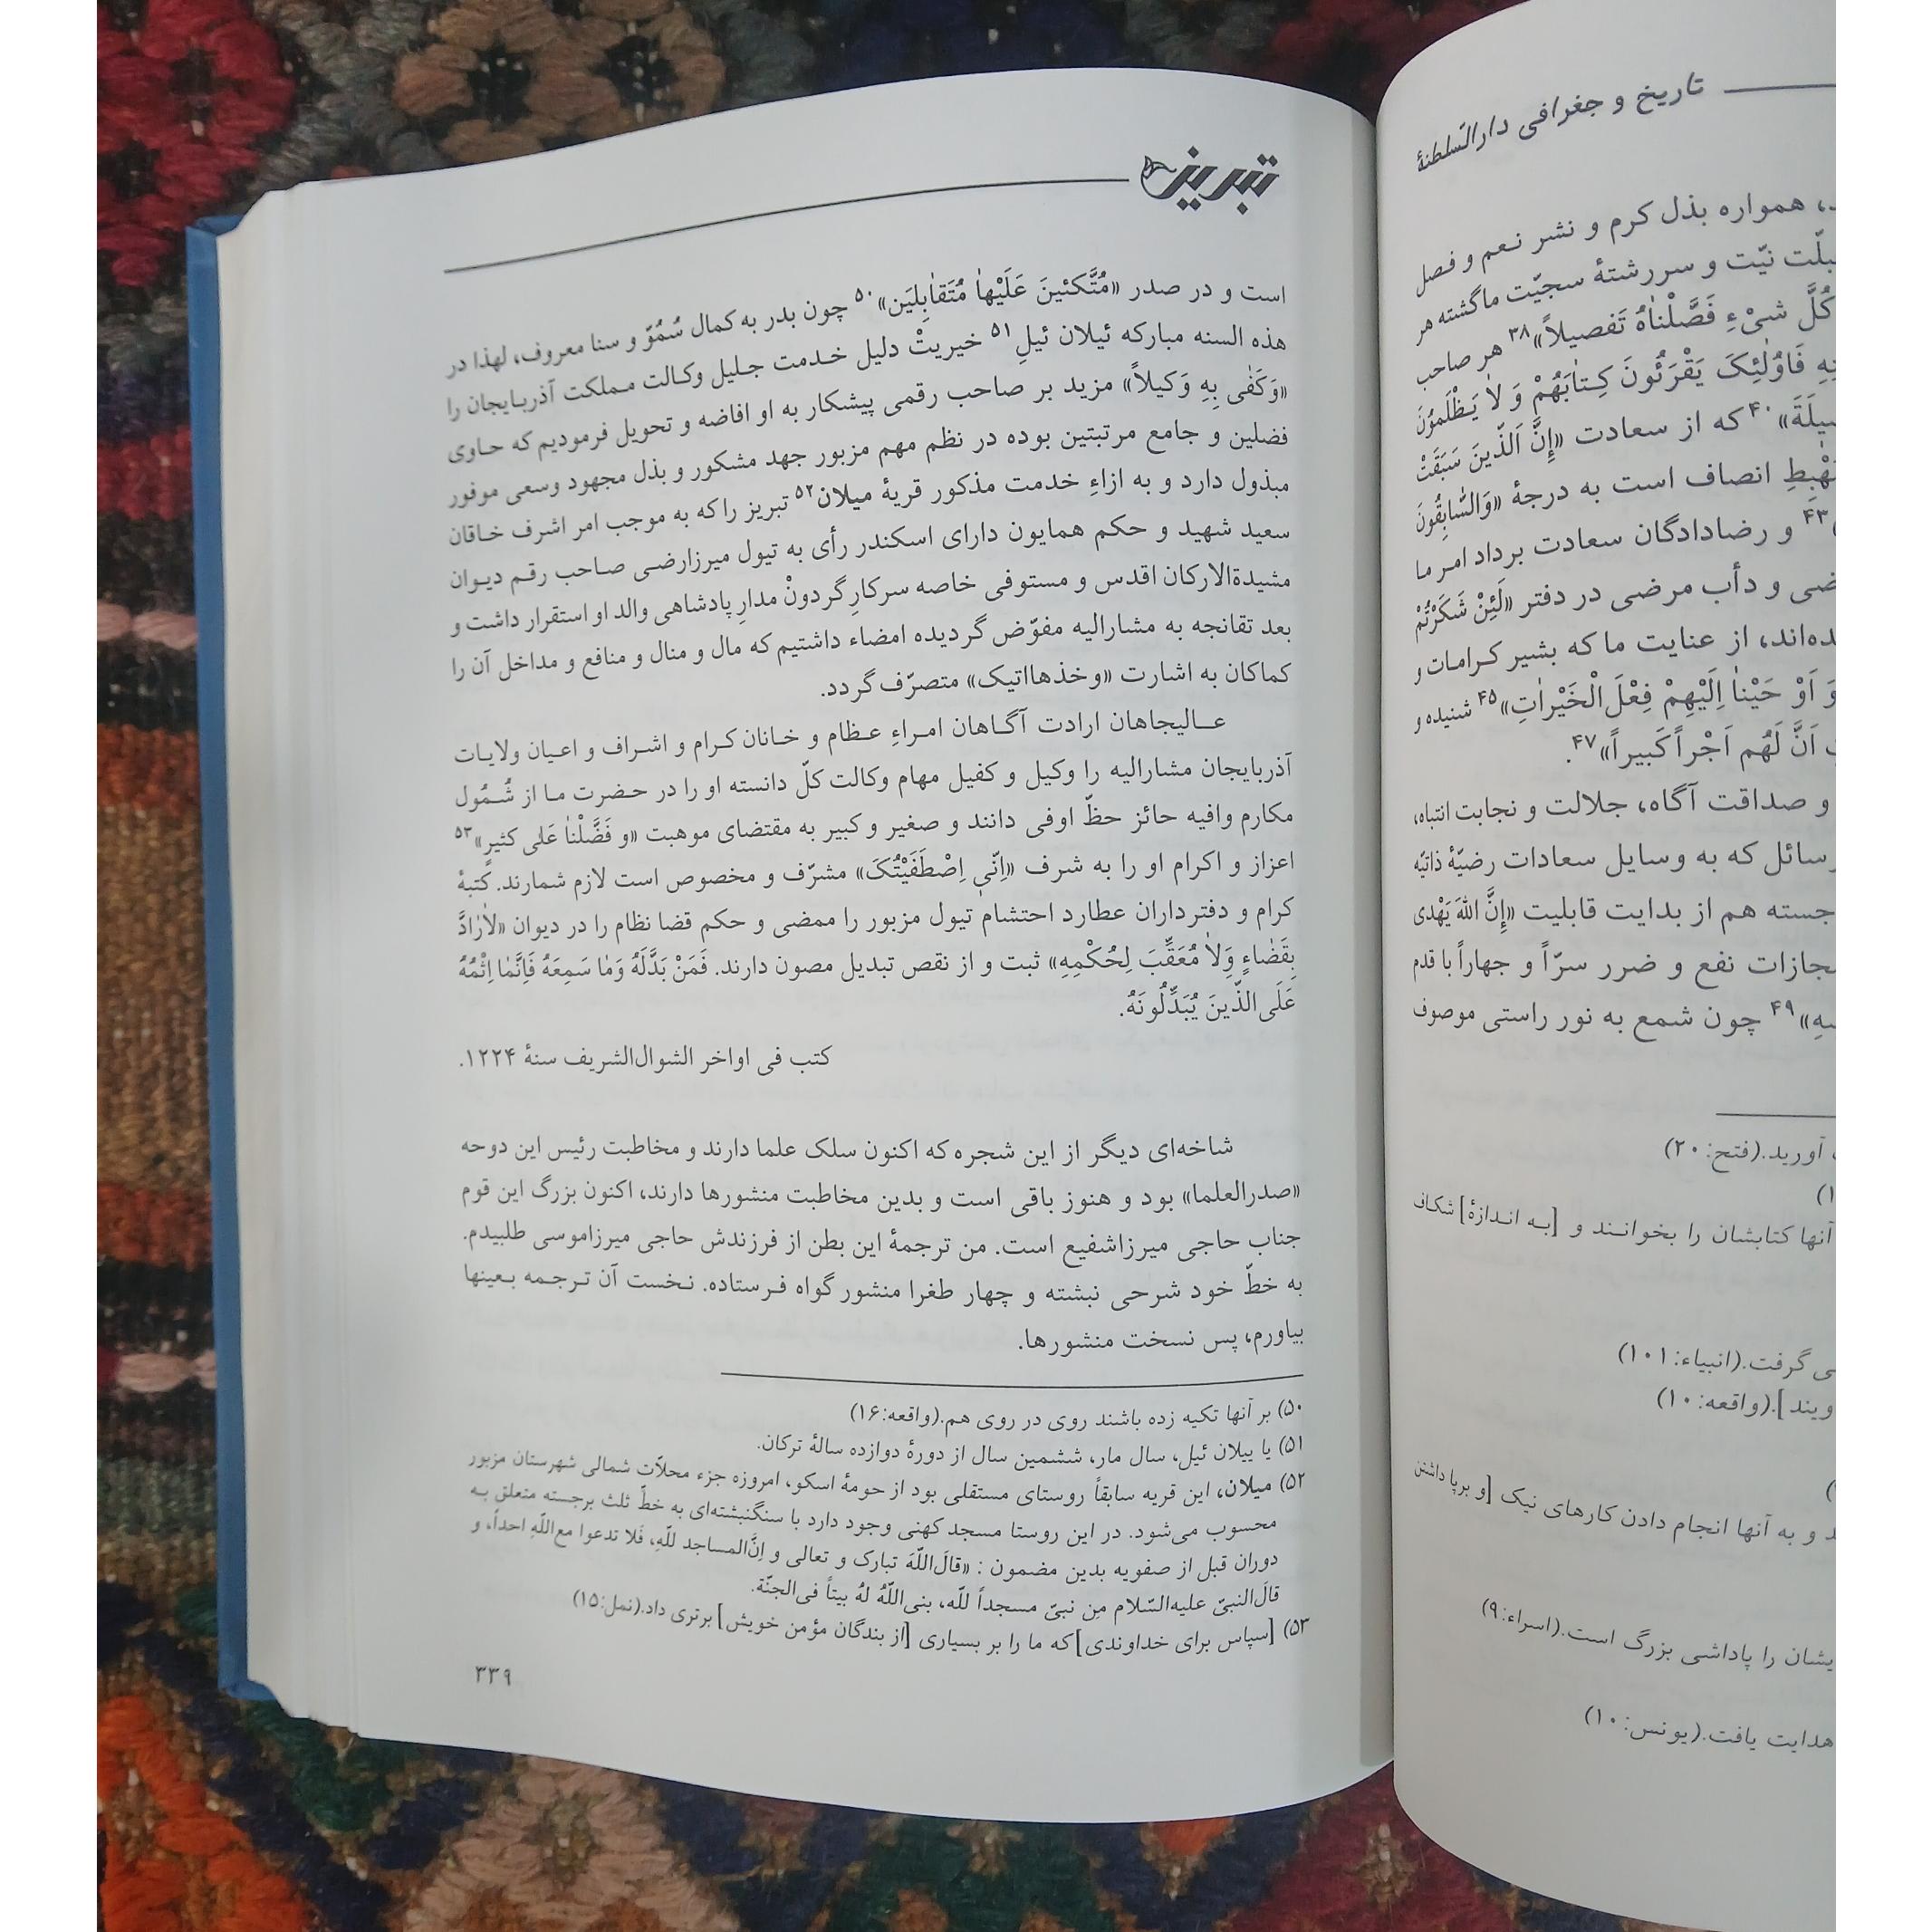 تاریخ و جغرافی دارالسّلطنهٔ
همواره بذل کرم و نشر نعم و فصل
نیّت و سررشتهٔ سجیّت ما گشته هر
کُلَّ شیْءٍ فَصَّلْنٰاهُ تَفصیلاً»۳۸ هر صاحب
فَاوُلٰئِکَ یَقْرَئُونَ کِتٰابَهُمْ وَ لاٰ یَظْلَموُنَ
۴۰ که از سعادت «إِنَّ اَلذّینَ سَبَقَتْ
انصاف است به درجهٔ «وَالسّٰابِقُونَ
۴۳ و رضادادگان سعادت برداد امر ما
و دأب مرضی در دفتر «لَئِنْ شَکَرْتُمْ
از عنایت ما که بشیر کرامات و
اَوْ حَیْناٰ اِلَیْهِمْ فِعْلَ الْخَیْرٰاتِ»۴۵ شنیده و
اَنَّ لَهُم اَجْراً کَبیراً»۴۷.
و صداقت آگاه، جلالت و نجابت انتباه،
که به وسایل سعادات رضیّهٔ ذاتیّه
جسته هم از بدایت قابلیت «إِنَّ اللهَ یَهْدی
نفع و ضرر سرّاً و جهاراً با قدم
۴۹ چون شمع به نور راستی موصوف
آورید.(فتح:۲۰)
آنها کتابشان را بخوانند و [به اندازهٔ] شکاف
گرفت.(انبیاء:۱۰۱)
].(واقعه:۱۰)
و به آنها انجام دادن کارهای نیک [و برپا داشتن
را پاداشی بزرگ است.(اسراء:۹)
هدایت یافت.(یونس:۱۰)
تبریز
است و در صدر «مُتَّکئینَ عَلَیْهاٰ مُتَقاٰبِلیَن»۵۰ چون بدر به کمال سُمُوّ و سنا معروف، لهذا در
هذه السنه مبارکه ئیلان ئیلِ۵۱ خیریتْ دلیل خدمت جلیل وکالت مملکت آذربایجان را
«وَکَفٰی بِهِ وَکیلاً» مزید بر صاحب رقمی پیشکار به او افاضه و تحویل فرمودیم که حاوی
فضلین و جامع مرتبتین بوده در نظم مهم مزبور جهد مشکور و بذل مجهود وسعی موفور
مبذول دارد و به ازاءِ خدمت مذکور قریهٔ میلان۵۲ تبریز را که به موجب امر اشرف خاقان
سعید شهید و حکم همایون دارای اسکندر رأی به تیول میرزارضی صاحب رقم دیوان
مشیدةالارکان اقدس و مستوفی خاصه سرکارِ گردونْ مدارِ پادشاهی والد او استقرار داشت و
بعد تقانجه به مشارالیه مفوّض گردیده امضاء داشتیم که مال و منال و منافع و مداخل آن را
کماکان به اشارت «وخذهااتیک» متصرّف گردد.
عالیجاهان ارادت آگاهان امراءِ عظام و خانان کرام و اشراف و اعیان ولایات
آذربایجان مشارالیه را وکیل و کفیل مهام وکالت کلّ دانسته او را در حضرت ما از شُمُول
مکارم وافیه حائز حظّ اوفی دانند و صغیر و کبیر به مقتضای موهبت «و فَضَّلْناٰ عَلٰی کثیرٍ»۵۳
اعزاز و اکرام او را به شرف «اِنّیٖ اِصْطَفَیْتُکَ» مشرّف و مخصوص است لازم شمارند. کتبهٔ
کرام و دفترداران عطارد احتشام تیول مزبور را ممضی و حکم قضا نظام را در دیوان «لاٰرٰادَّ
بِقَضٰاءٍ وَلاٰ مُعَقِّبَ لِحُکْمِهِ» ثبت و از نقص تبدیل مصون دارند. فَمَنْ بَدَّلَهُ وَمٰا سَمِعَهُ فَاِنَّمٰا اِثْمُهُ
عَلَی الذّینَ یُبَدِّلُونَهُ.
کتب فی اواخر الشوال‌الشریف سنهٔ ۱۲۲۴.
شاخه‌ای دیگر از این شجره که اکنون سلک علما دارند و مخاطبت رئیس این دوحه
«صدرالعلما» بود و هنوز باقی است و بدین مخاطبت منشورها دارند، اکنون بزرگ این قوم
جناب حاجی میرزاشفیع است. من ترجمهٔ این بطن از فرزندش حاجی میرزاموسی طلبیدم.
به خطّ خود شرحی نبشته و چهار طغرا منشور گواه فرستاده. نخست آن ترجمه بعینها
بیاورم، پس نسخت منشورها.
۵۰) بر آنها تکیه زده باشند روی در روی هم.(واقعه:۱۶)
۵۱) یا ییلان ئیل، سال مار، ششمین سال از دورهٔ دوازده سالهٔ ترکان.
۵۲) میلان، این قریه سابقاً روستای مستقلی بود از حومهٔ اسکو، امروزه جزء محلاّت شمالی شهرستان مزبور
محسوب می‌شود. در این روستا مسجد کهنی وجود دارد با سنگنبشته‌ای به خطّ ثلث برجسته متعلق به
دوران قبل از صفویه بدین مضمون : «قالَ‌اللّهَ تبارک و تعالی و اِنَّ‌المساجد للّهِ، فَلا تدعوا مع‌اللّهِ احداً، و
قالَ‌النبیّ علیه‌السّلام مِن نبیّ مسجداً للّه، بنی‌اللّهُ لهُ بیتاً فی‌الجنّة.
۵۳) [سپاس برای خداوندی] که ما را بر بسیاری [از بندگان مؤمن خویش] برتری داد.(نمل:۱۵)
۳۳۹